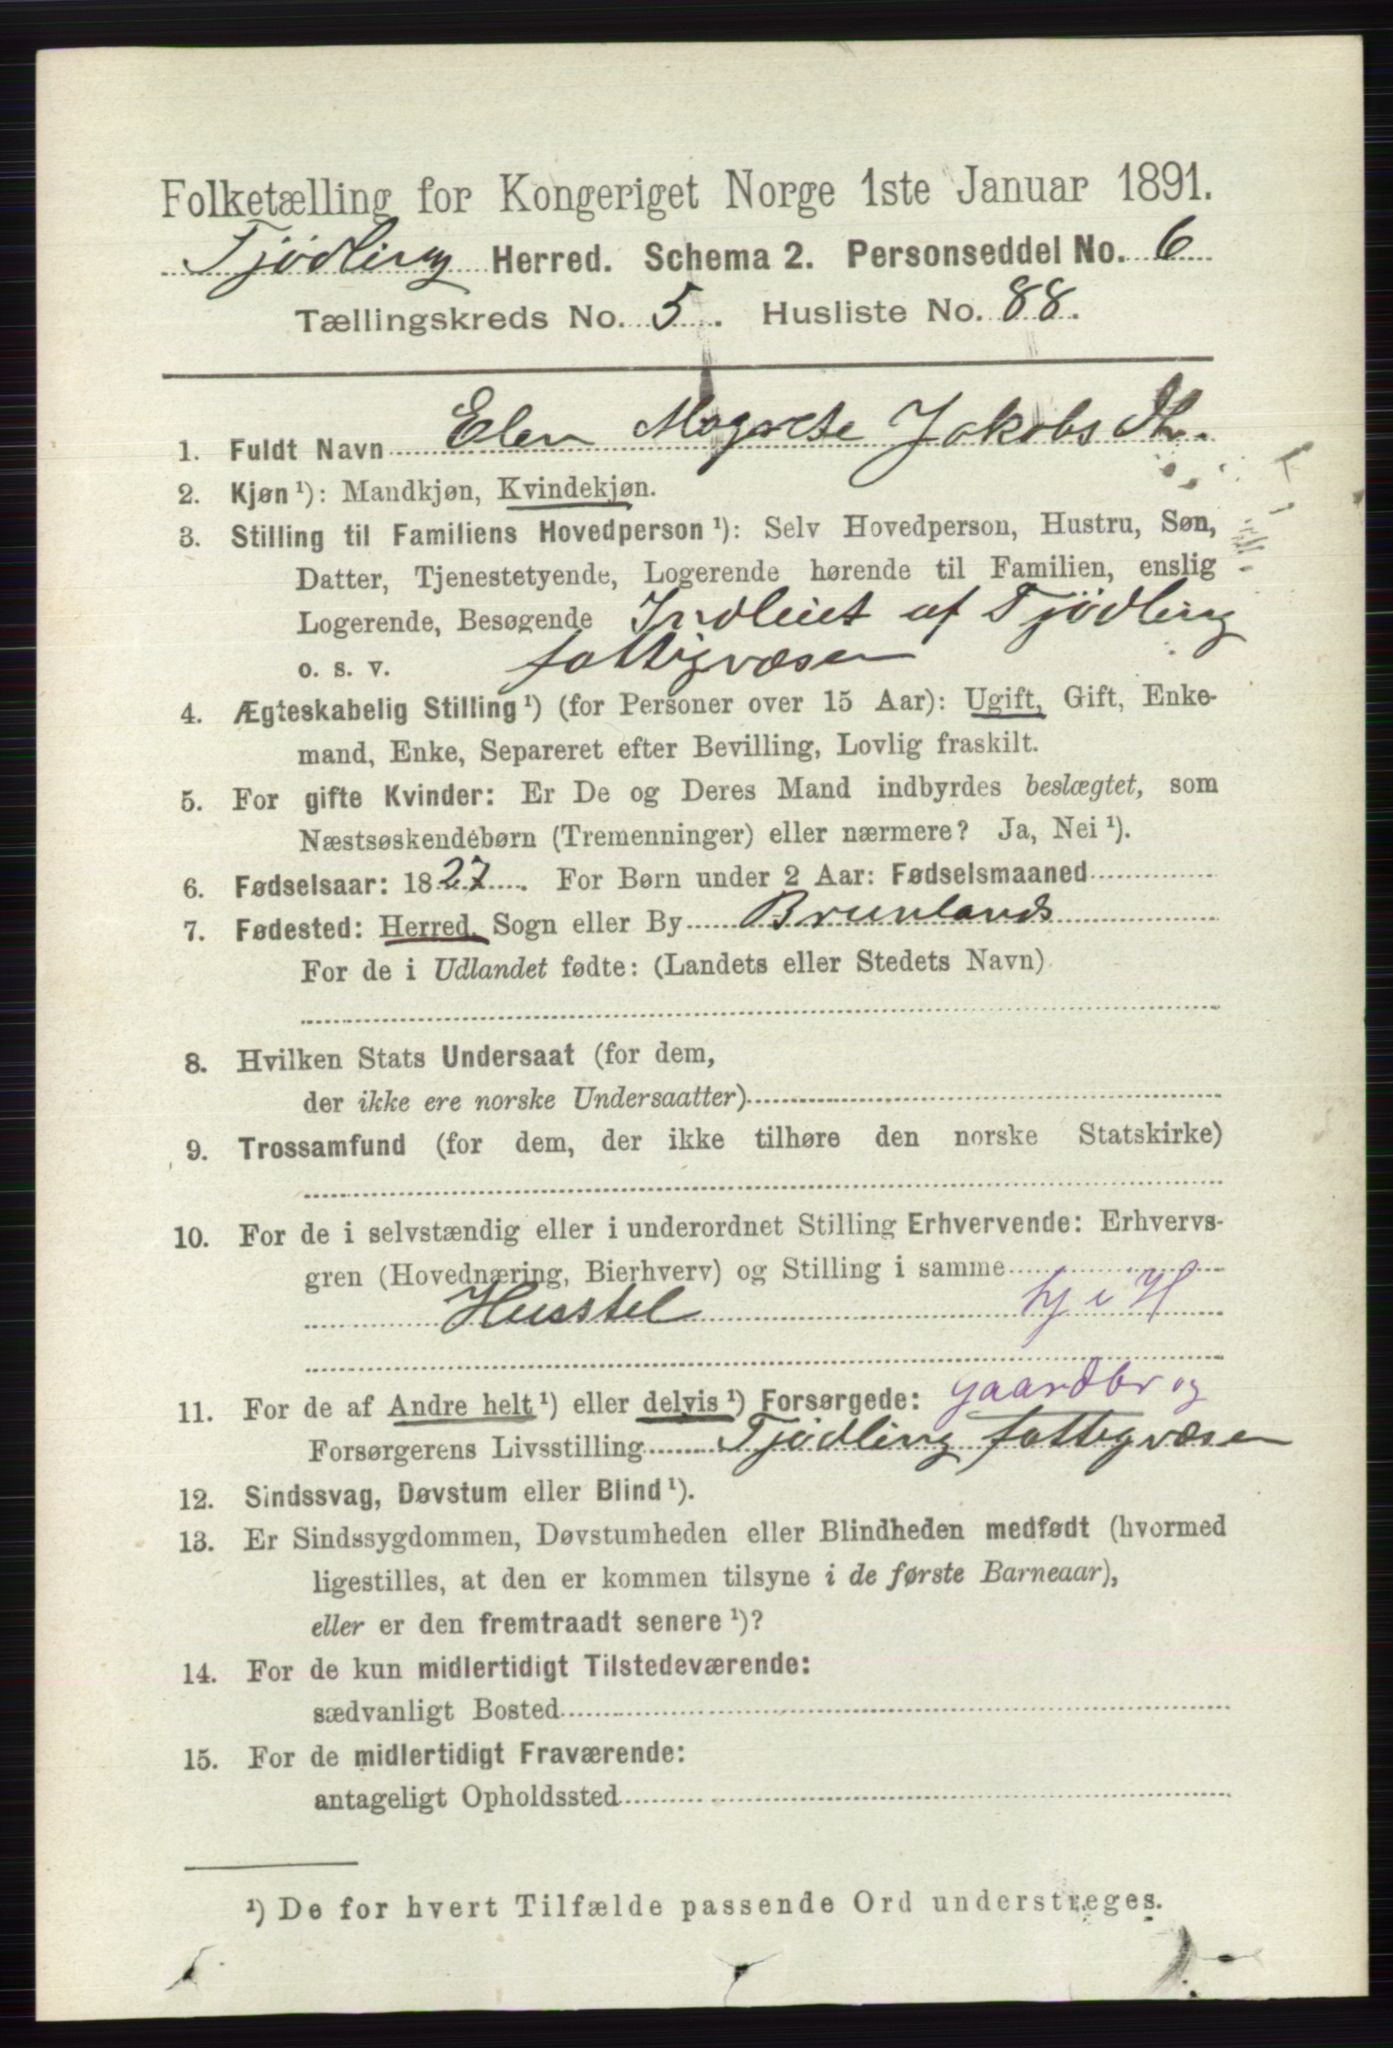 Folketælling for Kongeriget Norge 1ste Januar 1891.
Tjødling Herred. Schema 2. Personseddel No. 6
Tællingskreds No. 5. Husliste No. 88.
1. Fuldt Navn Elen Magrete Jakobsdtr.
2. Kjøn ¹): Mandkjøn, Kvindekjøn.
3. Stilling til Familiens Hovedperson ¹): Selv Hovedperson, Hustru, Søn,
Datter, Tjenestetyende, Logerende hørende til Familien, enslig
Logerende, Besøgende Indleiet af Tjødling
o. s. v. fattigvæsen
4. Ægteskabelig Stilling ¹) (for Personer over 15 Aar): Ugift, Gift, Enke-
mand, Enke, Separeret efter Bevilling, Lovlig fraskilt.
5. For gifte Kvinder: Er De og Deres Mand indbyrdes beslægtet, som
Næstsøskendebørn (Tremenninger) eller nærmere? Ja, Nei ¹).
6. Fødselsaar: 1827. For Børn under 2 Aar: Fødselsmaaned
7. Fødested: Herred, Sogn eller By Brunlands
For de i Udlandet fødte: (Landets eller Stedets Navn)
8. Hvilken Stats Undersaat (for dem,
der ikke ere norske Undersaatter)
9. Trossamfund (for dem, der ikke tilhøre den norske Statskirke)
10. For de i selvstændig eller i underordnet Stilling Erhvervende: Erhvervs-
gren (Hovednæring, Bierhverv) og Stilling i samme
Husstel tj i H
11. For de af Andre helt ¹) eller delvis ¹) Forsørgede: gaardbr og
Forsørgerens Livsstilling Tjødling fattigvæsen
12. Sindssvag, Døvstum eller Blind ¹).
13. Er Sindssygdommen, Døvstumheden eller Blindheden medfødt (hvormed
ligestilles, at den er kommen tilsyne i de første Barneaar),
eller er den fremtraadt senere ¹)?
14. For de kun midlertidigt Tilstedeværende:
sædvanligt Bosted
15. For de midlertidigt Fraværende:
antageligt Opholdssted
¹) De for hvert Tilfælde passende Ord understreges.